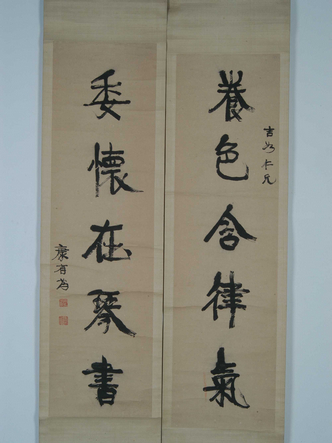 養色含律氣
吉如仁兄
委懷在琴書
康有為